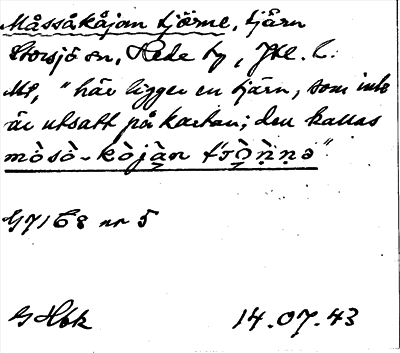 Måssåkåjan tjärne, tjärn
Storsjö sn, Hede tg, Jtl. l.
M, "här ligger en tjärn, som inte
är utsatt på kartan; den kallas
mòsò-kòjàn
G7168 nr 5
14.07.43